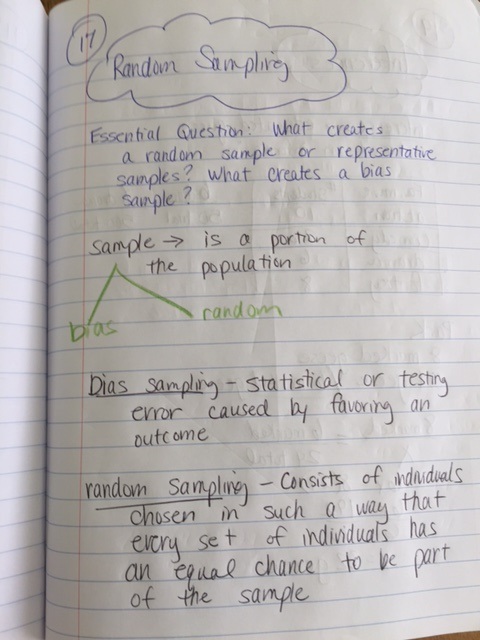 17
Random Sampling
Essential Question: What creates
a random sample or representative
samples? What creates a bias
sample?
sample → is a portion of
the population
bias
random
bias sampling - statistical or testing
error caused by favoring an
outcome
random Sampling - Consists of individuals
chosen in such a way that
every set of individuals has
an equal chance to be part
of the sample